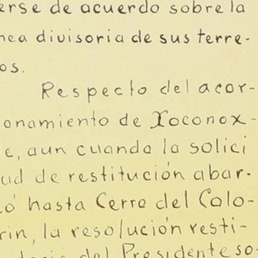 erse de acuerdo sobre la
nea divisoria de sus terre-
os.
Respecto del acor-
onamiento de Xoconox-
e, aun cuando la solici
ud de restitución abar-
có hasta Cerro del Colo-
rin, la resolución resti-
toria del Presidente so-